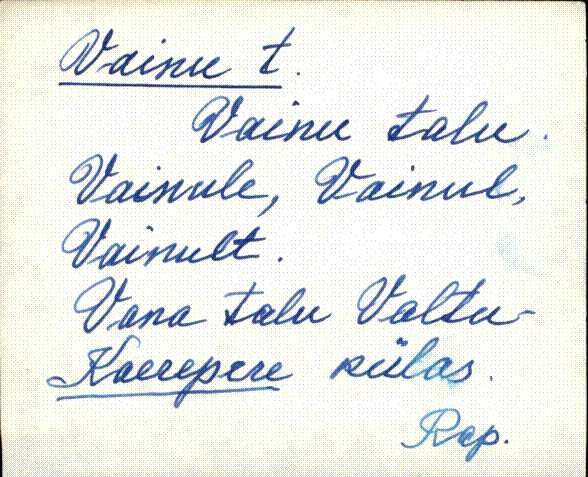 Vainu t.
Vainu talu.
Vainule, Vainul,
Vainult.
Vana talu Valtu-
Kaerepere külas.
Rap.